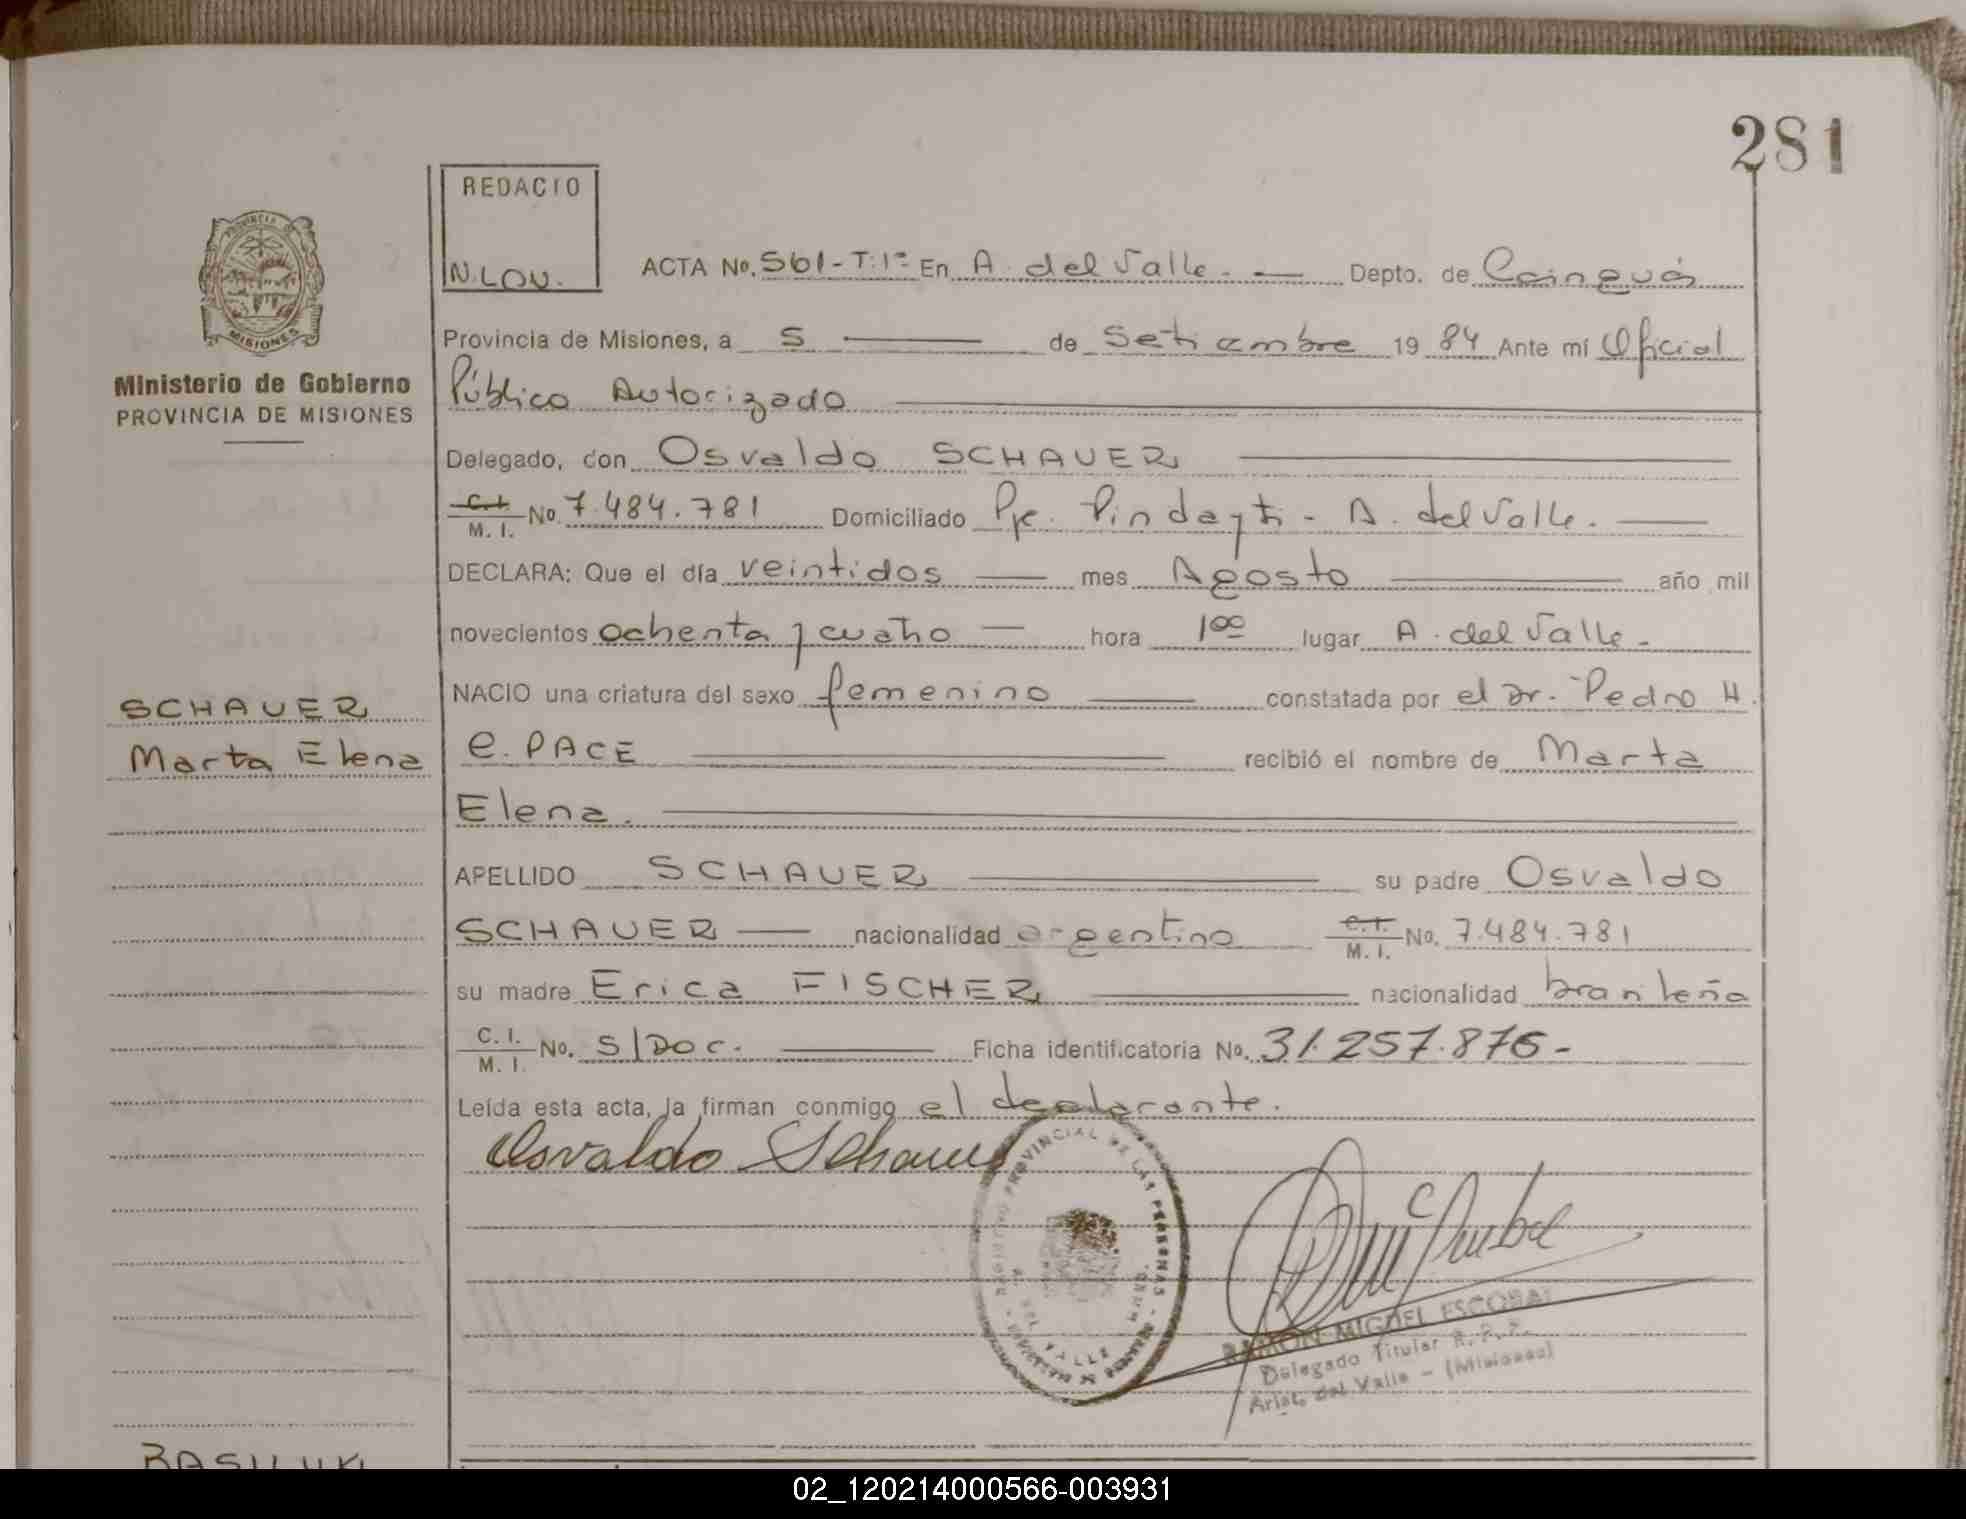 281
REDACIO
N.LOV.
ACTA No. 561-T:1º En A. del Valle. — Depto. de Cainguás
Provincia de Misiones, a 5 — de Setiembre 19 84 Ante mí Oficial
Público Autorizado
Ministerio de Gobierno
PROVINCIA DE MISIONES
Delegado, don Osvaldo SCHAUER
C.I. M. I. No. 7.484.781 Domiciliado Pje. Pindayti - A. del Valle.
DECLARA: Que el día veintidos — mes Agosto — año mil
novecientos ochenta y cuatro — hora 1⁰⁰ lugar A. del Valle -
NACIO una criatura del sexo femenino — constatada por el Dr. Pedro H.
SCHAUER
Marta Elena
e. PACE — recibió el nombre de Marta
Elena.
APELLIDO SCHAUER — su padre Osvaldo
SCHAUER — nacionalidad argentino C.I. M. I. No. 7.484.781
su madre Erica FISCHER — nacionalidad brasileña
C. I. M. I. No. S/Doc. — Ficha identificatoria No. 31.257.876-
Leída esta acta, la firman conmigo el declarante.
Osvaldo Schauer
PROVINCIAL DE LAS PERSONAS
DEL VALLE
RAMON MIGUEL ESCOBAR
Delegado Titular R. P. P.
Arist. del Valle - (Misiones)
BASILUK
02_120214000566-003931